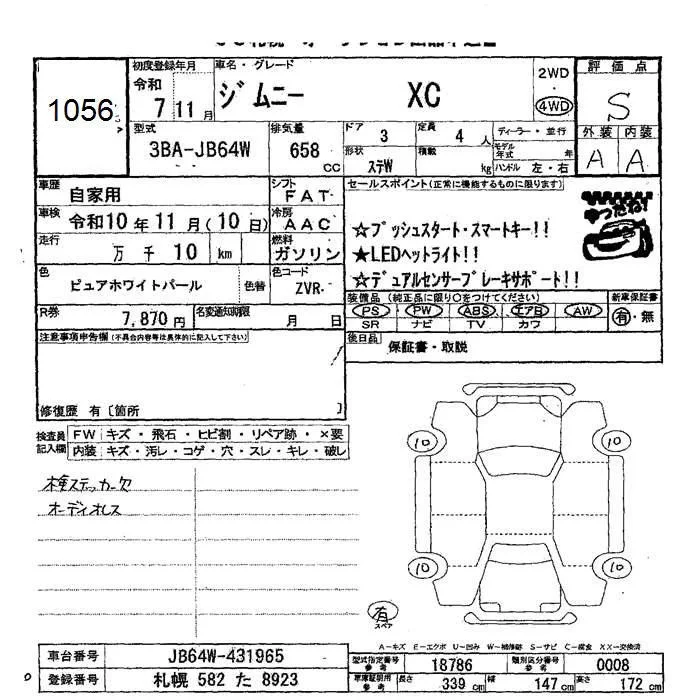 1056
初度登録年月
令和
7年11月
車名・グレード
ジムニー XC
2WD
4WD
評価点
S
外装 内装
A A
型式
3BA-JB64W
排気量
658 CC
ドア 3
定員 4 人
形状 ステW
積載 kg
ディーラー・並行
モデル年式 年
ハンドル 左・右
車歴 自家用
シフト FAT
車検 令和10年11月(10日)
冷房 AAC
走行 万千10 km
燃料 ガソリン
色 ピュアホワイトパール 色替
色コード ZVR
R券 7,870円
名変通知期限 月 日
セールスポイント(正常に機能するものに限ります)
☆プッシュスタート・スマートキー!!
★LEDヘットライト!!
☆デュアルセンサーブレーキサポート!!
やったね!
装備品(純正品に限り○をつけてください)
PS PW ABS エアB AW
SR ナビ TV カワ
新車保証書
有・無
後日品 保証書・取説
注意事項申告欄(不具合内容等は具体的に記入して下さい)
修復歴 有〔箇所 〕
検査員記入欄
FW キズ・飛石・ヒビ割・リペア跡・×要
内装 キズ・汚レ・コゲ・穴・スレ・キレ・破レ
検ステッカー欠
オーディオレス
10 10
10 10
有
スペア
A-キズ E-エクボ U-凹み W-補修跡 S-サビ C-腐食 XX-交換済
車台番号 JB64W-431965
登録番号 札幌 582 た 8923
型式指定番号 参考 18786
類別区分番号 参考 0008
車庫証明用 参考 長さ 339cm 幅 147cm 高さ 172cm